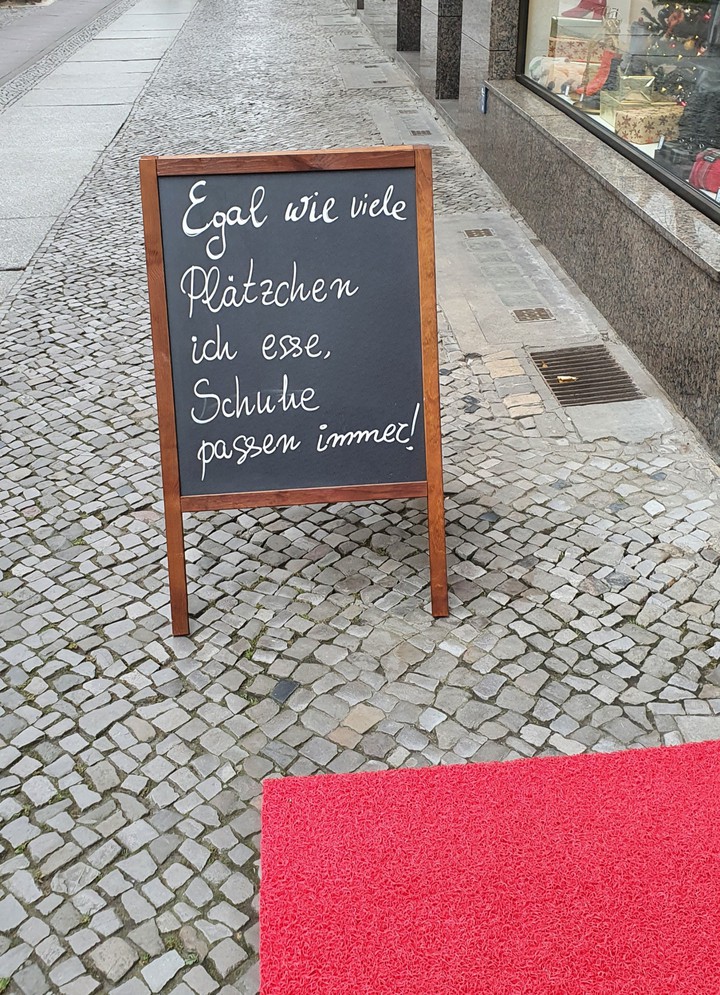 Egal wie viele
Plätzchen
ich esse,
Schuhe
passen immer!